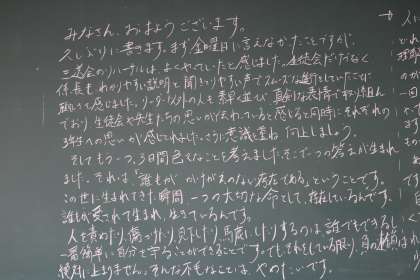 みなさん、おはようございます。
久しぶりに書きます。まず金曜日に言えなかったことですが、
三送会のリハーサルは、よくやっていたと感じました。生徒会だけでなく
係長もわかりやすい説明と聞きとりやすい声でスムーズな進行をしていたなぁ
感じました。リーダー以外の人も素早く並び、真剣な表情で取り組ん
でおり、生徒会や先生たちの思いが伝わっていると感じると同時に、それぞれの
3年生への思いが感じとれました。さらに意識を重ね、向上しましょう。
そしてもう一つ、3日間色々なことを考えました。そこで一つの答えが生まれ
ました。それは、「誰もがかけがえのない存在である」ということです。
この世に生まれてきた瞬間、一つの大切な命として、存在しているんです。
誰もが愛されて生まれ、生きているんです。
人を責めたり、傷つけたり、見下したり、馬鹿にしたりするのは誰でもできるし
一番簡単に自分を守ることができることです。でもそれをしている限り、自の
絶対に止まりません。そんな不毛なことは、やめたいです。